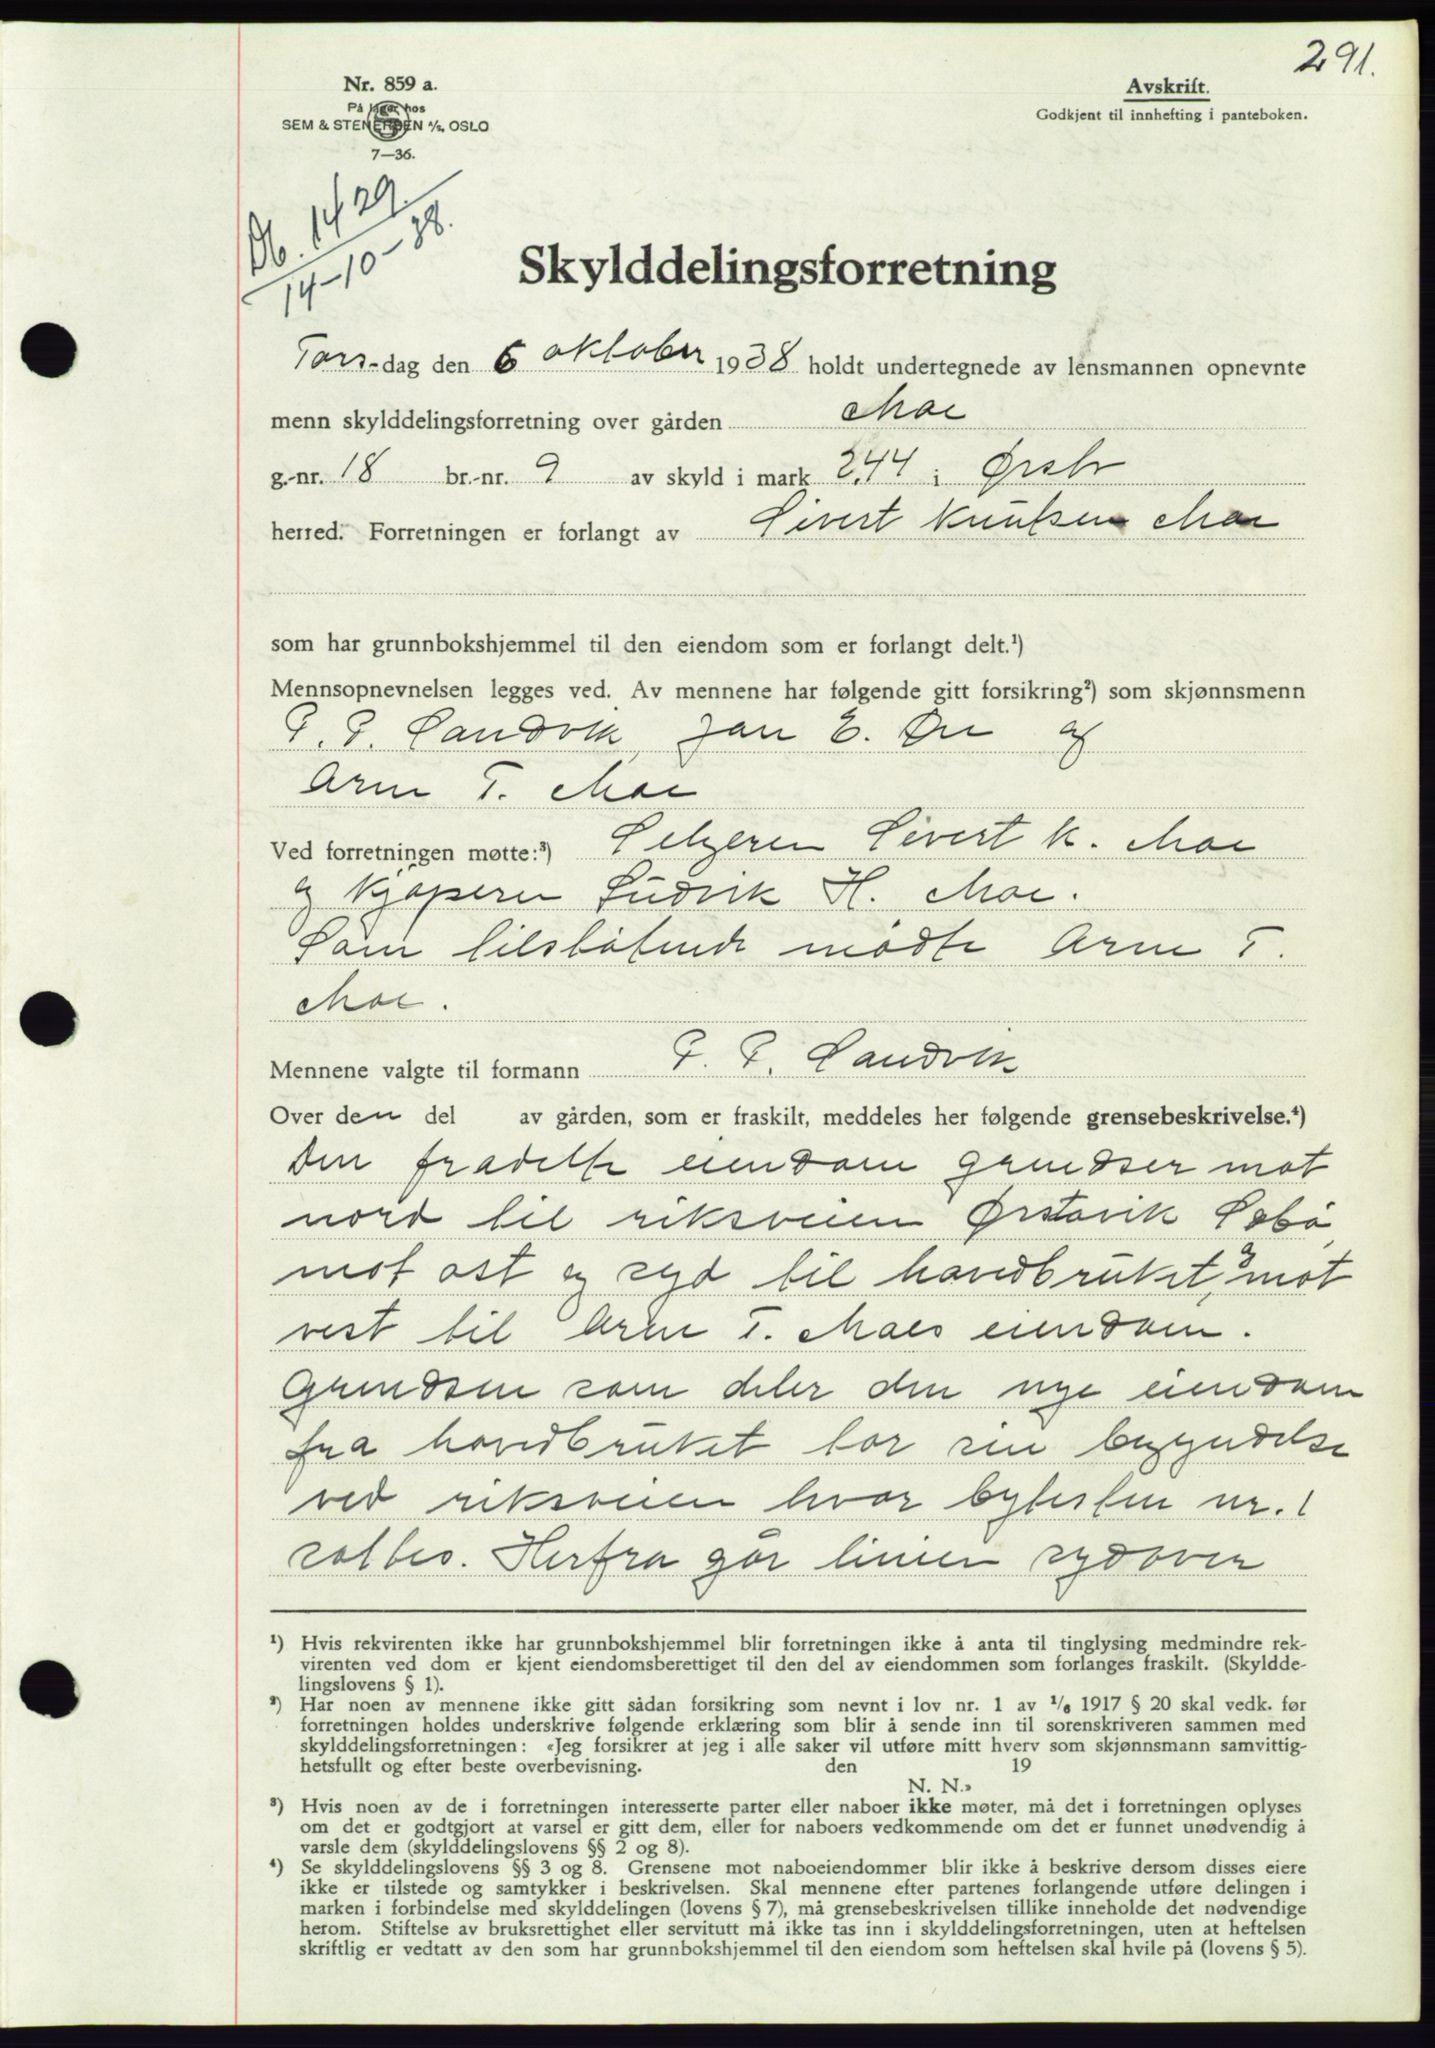 291.
Nr. 859 a.
På lager hos
SEM & STENERSEN A/S, OSLO
7—36.
Avskrift.
Godkjent til innhefting i panteboken.
Db. 1429.
14-10-38.
Skylddelingsforretning
Tors-dag den 6 oktober 1938 holdt undertegnede av lensmannen opnevnte
menn skylddelingsforretning over gården Moe
g.-nr. 18 br.-nr. 9 av skyld i mark 2,44 i Ørsta
herred. Forretningen er forlangt av Sivert Knutsen Moe
som har grunnbokshjemmel til den eiendom som er forlangt delt.¹)
Mennsopnevnelsen legges ved. Av mennene har følgende gitt forsikring²) som skjønnsmenn
P. P. Sandvik, Jon E. Øye og
Arne T. Moe
Ved forretningen møtte:³) Selgeren Sivert K. Moe
og kjøperen Ludvik H. Moe.
Som tilstøtende mødte Arne T.
Moe.
Mennene valgte til formann P. P. Sandvik
Over den del av gården, som er fraskilt, meddeles her følgende grensebeskrivelse.⁴)
Den fradelte eiendom grendser mot
nord til riksveien Ørstavik Sæbø,
mot ost og syd til hovedbruket, og mot
vest til Arne T. Moes eiendom.
Grendsen som deler den nye eiendom
fra hovedbruket tar sin begyndelse
ved riksveien hvor bytesten nr. 1
settes. Herfra går linien sydover
¹) Hvis rekvirenten ikke har grunnbokshjemmel blir forretningen ikke å anta til tinglysing medmindre rek-
virenten ved dom er kjent eiendomsberettiget til den del av eiendommen som forlanges fraskilt. (Skyldde-
lingslovens § 1).
²) Har noen av mennene ikke gitt sådan forsikring som nevnt i lov nr. 1 av 1/6 1917 § 20 skal vedk. før
forretningen holdes underskrive følgende erklæring som blir å sende inn til sorenskriveren sammen med
skylddelingsforretningen: «Jeg forsikrer at jeg i alle saker vil utføre mitt hverv som skjønnsmann samvittig-
hetsfullt og efter beste overbevisning. den 19
N. N.»
³) Hvis noen av de i forretningen interesserte parter eller naboer ikke møter, må det i forretningen oplyses
om det er godtgjort at varsel er gitt dem, eller for naboers vedkommende om det er funnet unødvendig å
varsle dem (skylddelingslovens §§ 2 og 8).
⁴) Se skylddelingslovens §§ 3 og 8. Grensene mot naboeiendommer blir ikke å beskrive dersom disses eiere
ikke er tilstede og samtykker i beskrivelsen. Skal mennene efter partenes forlangende utføre delingen i
marken i forbindelse med skylddelingen (lovens § 7), må grensebeskrivelsen tillike inneholde det nødvendige
herom. Stiftelse av bruksrettighet eller servitutt må ikke tas inn i skylddelingsforretningen, uten at heftelsen
skriftlig er vedtatt av den som har grunnbokshjemmel til den eiendom som heftelsen skal hvile på (lovens § 5).